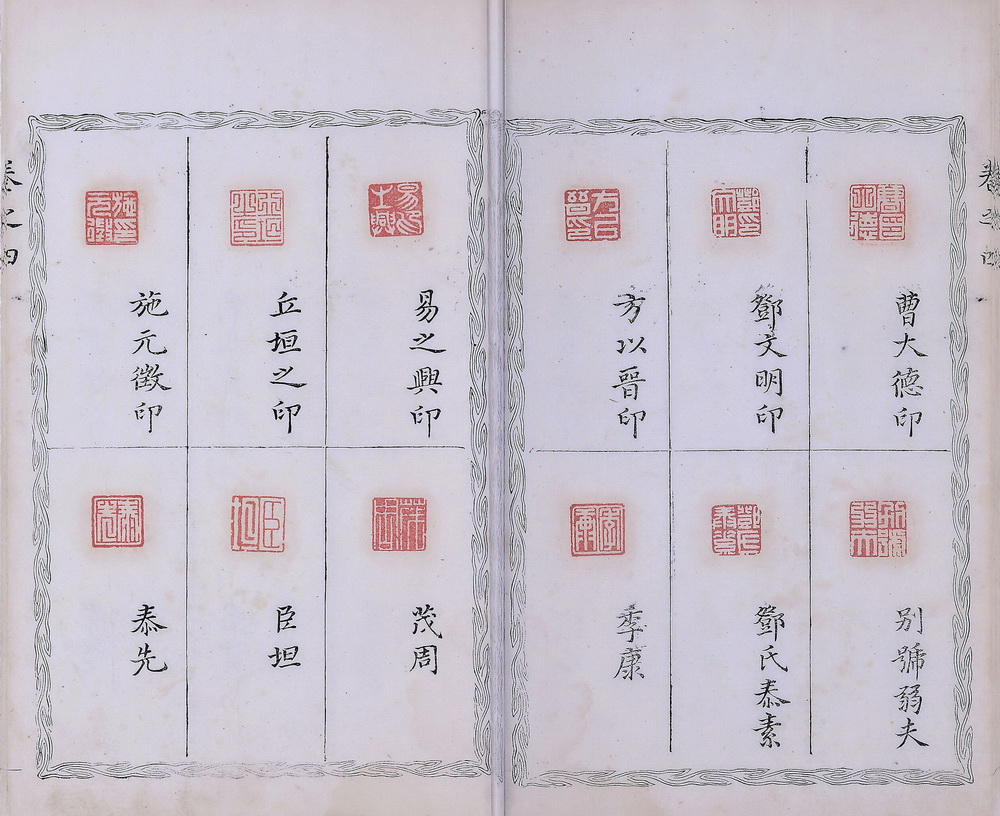 卷之四
曹大德印
別號弱夫
鄧文明印
鄧氏泰素
方以晉印
季康
易之興印
茂周
丘垣之印
臣垣
施元徵印
泰先
卷之四